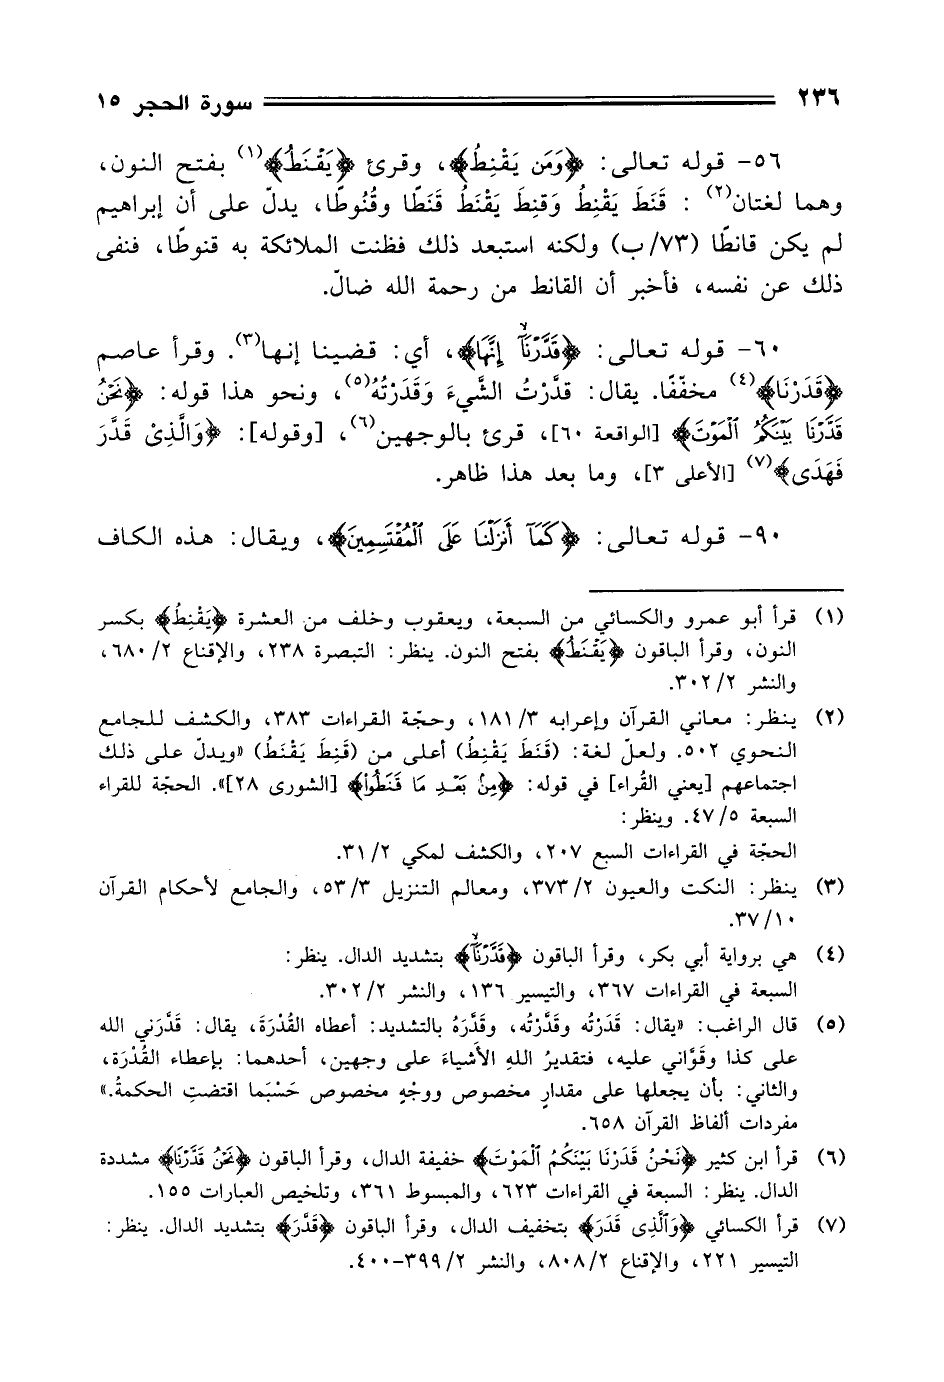 ٢٣٦ سورة الحجر ١٥
٥٦- قوله تعالى: ﴿وَمَن يَقْنِطُ﴾، وقرئ ﴿يَقْنَطُ﴾(١) بفتح النون،
وهما لغتان(٢) : قَنَطَ يَقْنِطُ وَقنِطَ يَقْنَطُ قَنَطًا وقُنُوطًا، يدلّ على أن إبراهيم
لم يكن قانطًا (٧٣/ب) ولكنه استبعد ذلك فظنت الملائكة به قنوطًا، فنفى
ذلك عن نفسه، فأخبر أن القانط من رحمة الله ضالّ.
٦٠- قوله تعالى: ﴿قَدَّرْنَآۙ إِنَّهَا﴾، أي: قضينا إنها(٣). وقرأ عاصم
﴿قَدَرْنَا﴾(٤) مخفّفًا. يقال: قدَّرْتُ الشَّيءَ وَقَدَرْتُهُ(٥)، ونحو هذا قوله: ﴿نَحْنُ
قَدَّرْنَا بَيْنَكُمُ ٱلْمَوْتَ﴾ [الواقعة ٦٠]، قرئ بالوجهين(٦)، [وقوله]: ﴿وَالَّذِىْ قَدَّرَ
فَهَدَى﴾(٧) [الأعلى ٣]، وما بعد هذا ظاهر.
٩٠- قوله تعالى: ﴿كَمَآ أَنزَلْنَا عَلَى ٱلْمُقْتَسِمِينَ﴾، ويقال: هذه الكاف
(١) قرأ أبو عمرو والكسائي من السبعة، ويعقوب وخلف من العشرة ﴿يَقْنِطُ﴾ بكسر
النون، وقرأ الباقون ﴿يَقْنَطُ﴾ بفتح النون. ينظر: التبصرة ٢٣٨، والإقناع ٦٨٠/٢،
والنشر ٣٠٢/٢.
(٢) ينظر: معاني القرآن وإعرابه ١٨١/٣، وحجّة القراءات ٣٨٣، والكشف للجامع
النحوي ٥٠٢. ولعلّ لغة: (قَنَطَ يَقْنِطُ) أعلى من (قَنِطَ يَقْنَطُ) «ويدلّ على ذلك
اجتماعهم [يعني القُراء] في قوله: ﴿مِنۢ بَعْدِ مَا قَنَطُوا۟﴾ [الشورى ٢٨]». الحجّة للقراء
السبعة ٤٧/٥. وينظر:
الحجّة في القراءات السبع ٢٠٧، والكشف لمكي ٣١/٢.
(٣) ينظر: النكت والعيون ٣٧٣/٢، ومعالم التنزيل ٥٣/٣، والجامع لأحكام القرآن
٣٧/١٠.
(٤) هي برواية أبي بكر، وقرأ الباقون ﴿قَدَّرْنَآۙ﴾ بتشديد الدال. ينظر:
السبعة في القراءات ٣٦٧، والتيسير ١٣٦، والنشر ٣٠٢/٢.
(٥) قال الراغب: «يقال: قَدَرْتُه وقَدَّرْتُه، وقَدَّرَهُ بالتشديد: أعطاه القُدْرَةَ، يقال: قَدَّرَني الله
على كذا وقَوَّاني عليه، فتقديرُ اللهِ الأَشياءَ على وجهين، أحدهما: بإعطاء القُدْرَة،
والثاني: بأن يجعلها على مقدارٍ مخصوص ووجْهٍ مخصوص حَسْبَما اقتضتِ الحكمةُ.»
مفردات ألفاظ القرآن ٦٥٨.
(٦) قرأ ابن كثير ﴿نَحْنُ قَدَرْنَا بَيْنَكُمُ ٱلْمَوْتَ﴾ خفيفة الدال، وقرأ الباقون ﴿نَحْنُ قَدَّرْنَا﴾ مشددة
الدال. ينظر: السبعة في القراءات ٦٢٣، والمبسوط ٣٦١، وتلخيص العبارات ١٥٥.
(٧) قرأ الكسائي ﴿وَٱلَّذِى قَدَرَ﴾ بتخفيف الدال، وقرأ الباقون ﴿قَدَّرَ﴾ بتشديد الدال. ينظر:
التيسير ٢٢١، والإقناع ٨٠٨/٢، والنشر ٣٩٩/٢-٤٠٠.